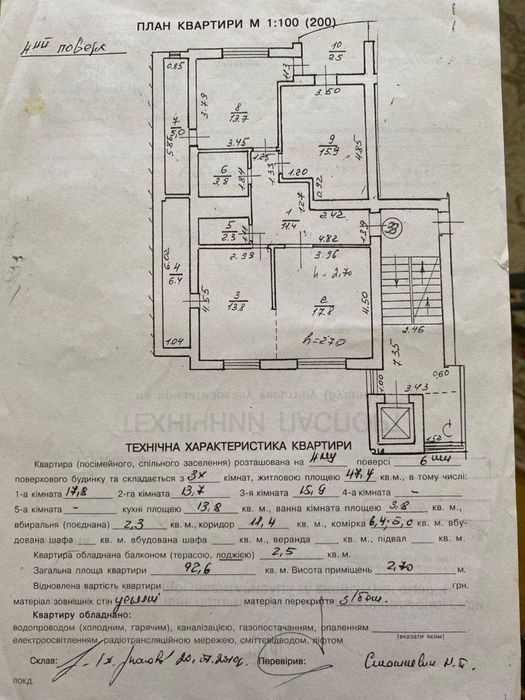 ПЛАН КВАРТИРИ М 1:100 (200)
4ий поверх
10
2.5
0.85
1.13
3.50
3.79
8
13.7
9
15.9
4.85
7
5.0
5.86
3.45
1.25
6
3.8
1.84
1.33
1.20
0.92
1.27
2.42
5
2.3
1
11.4
4.82
1.39
33
2.99
3.96
6.02
4
6.4
h=2.70
4.55
3
13.8
2
17.8
4.50
h=270
1.04
2.46
7.35
0.60
1.00
3.43
1.52
ТЕХНІЧНА ХАРАКТЕРИСТИКА КВАРТИРИ
Квартира (посімейного, спільного заселення) розташована на 4му поверсі 6 ти
поверхового будинку та складається з 3х кімнат, житловою площею 47,4 кв.м., в тому числі:
1-а кімната 17,8 2-га кімната 13,7 3-я кімната 15,9 4-а кімната -
5-а кімната - кухні площею 13.8 кв. м., ванна кімната 3.8 кв. м.,
вбиральня (поєднана) 2,3 кв.м., коридор 11,4 кв. м., комірка 6,4; 5,0 кв. м. вбу-
дована шафа кв. м. вбудована шафа кв. м., веранда кв. м., підвал кв. м.
Квартира обладнана балконом (терасою, лоджією) 2,5 кв. м.
Загальна площа квартири 92,6 кв. м. Висота приміщень 2,70 м.
Відновлена вартість квартири грн.
матеріал зовнішніх стін цегляні матеріал перекриття з/бет.
Квартиру обладнано:
водопроводом (холодним, гарячим), каналізацією, газопостачанням, опаленням
електроосвітленням, радіотрансляційною мережею, сміттєвідводом, ліфтом (вказати яким)
Склав: Перевірив: